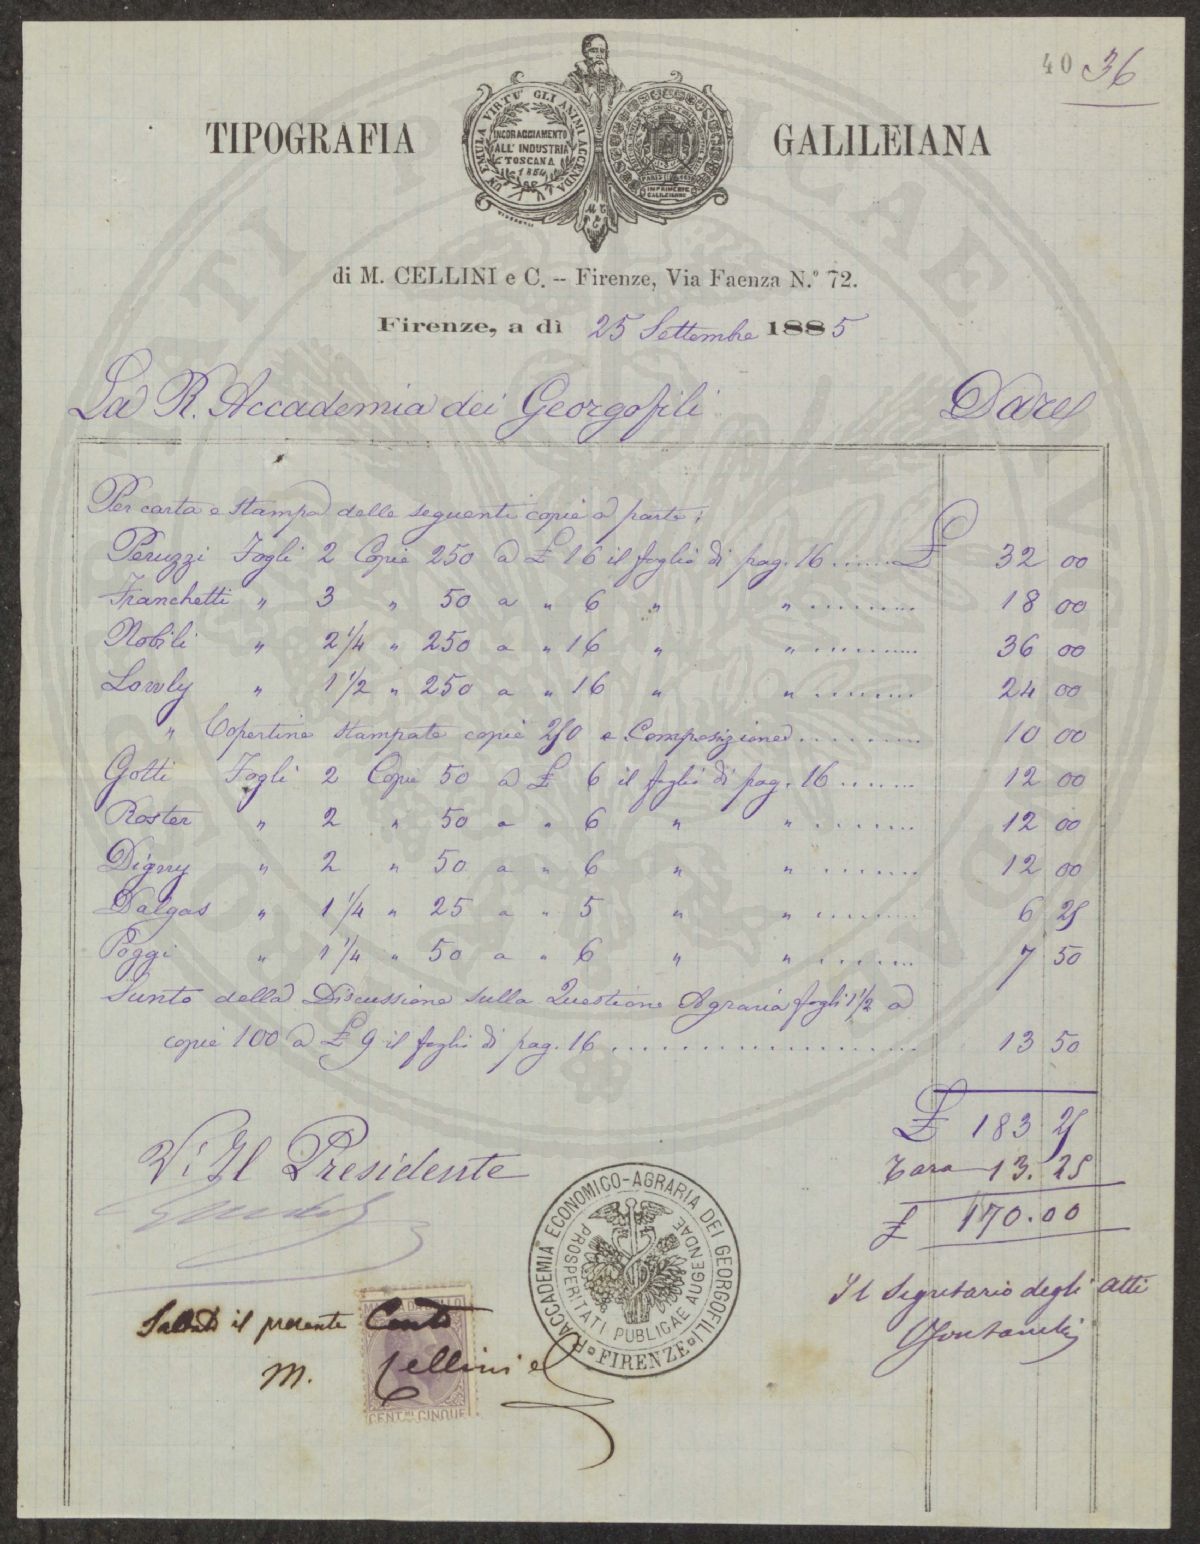 40 36
TIPOGRAFIA GALILEIANA
UN EMULA VIRTU' GLI ANIMI ACCENDA
INCORAGGIAMENTO
ALL' INDUSTRIA
TOSCANA
1854
di M. CELLINI e C. -- Firenze, Via Faenza N.º 72.
Firenze, a dì 25 Settembre 1885
La R. Accademia dei Georgofili Dare
Per carta e stampa delle seguenti copie a parte:
Peruzzi Fogli 2 Copie 250 a £ 16 il foglio di pag. 16 ....... £ 32 00
Franchetti " 3 " 50 a " 6 " " ......... 18 00
Nobili " 2 1/4 " 250 a " 16 " " ......... 36 00
Lawly " 1 1/2 " 250 a " 16 " " ......... 24 00
" Copertine stampate copie 250 e Composizione ......... 10 00
Gotti Fogli 2 Copie 50 a £ 6 il foglio di pag. 16 ....... 12 00
Roster " 2 " 50 a " 6 " " ........ 12 00
Digny " 2 " 50 a " 6 " " ........ 12 00
Dalgas " 1 1/4 " 25 a " 5 " " ........ 6 25
Poggi " 1 1/4 " 50 a " 6 " " ........ 7 50
Sunto della Discussione sulla Questione Agraria fogli 1 1/2 a
copie 100 a £ 9 il foglio di pag. 16 .................... 13 50
£ 183 25
Tara 13.25
£ 170.00
Vº Il Presidente
R. ACCADEMIA ECONOMICO-AGRARIA DEI GEORGOFILI
PROSPERITATI PUBLICAE AUGENDAE
FIRENZE
Il Segretario degli Atti
Saldato il presente Conto
M. Cellini e C
CENT.MI CINQUE